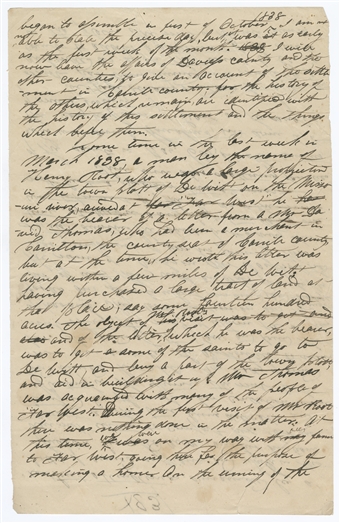 1838
began to assemble in first of October. I am not
able to state the precise day, but it was as early
as the first week of the month. I will
now leave the affairs of Daviess county and the
other counties, to give an account of the settle
ment in Carroll county, for the history of
the others, which remain, are identified with
the history of this settlement and the things
which befel them.
Some time in the last week in
March 1838, a man by the name of
Henry Root, who was a large proprietor
in the town plott of De witt on the Misso
uri river, arrived at Far West he
was the bearer of a letter from a Mr Da
vid Thomas, who had been a merchant in
Carrolton, the county seat of Carroll county
but at the time, he wrote this letter was
living within a few miles of De witt
having purchased a large tract of land at
that place; say some fourteen hundred
acres. The object of Mr Root's
and of the letter, which he was the bearer,
was to get some of the saints to go to
De witt, and buy a part of the town plott,
and aid in building it up. Mr Thomas
was acquainted with many of the people of
Far West. During the first visit of Mr Root
there was nothing done in the matter. At
this time, was on my way with my family
to Far West, going there for the purpose of
making a home. On the coming of the